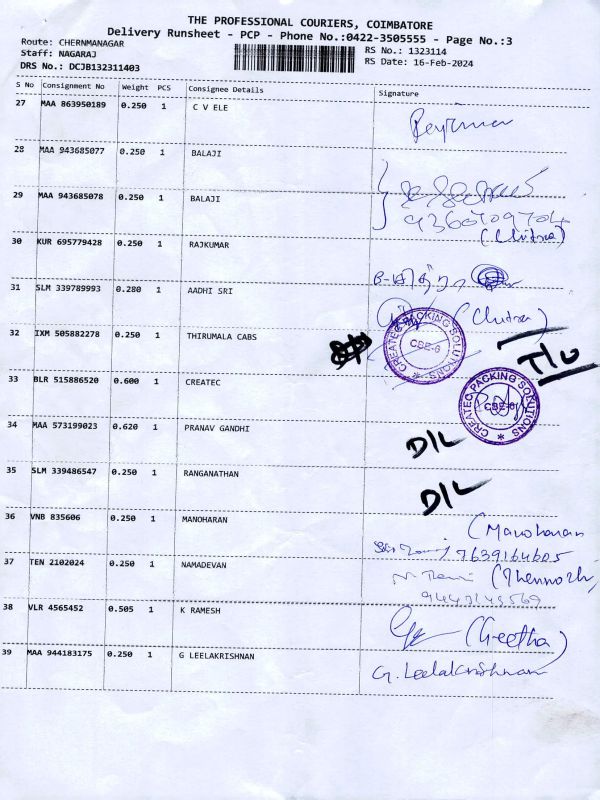 THE PROFESSIONAL COURIERS, COIMBATORE
Delivery Runsheet - PCP - Phone No.:0422-3505555 - Page No.:3
Route: CHERNMANAGAR
RS No.: 1323114
Staff: NAGARAJ
RS Date: 16-Feb-2024
DRS No.: DCJB132311403
S No Consignment No Weight PCS Consignee Details Signature
27 MAA 863950189 0.250 1 C V ELE
28 MAA 943685077 0.250 1 BALAJI
29 MAA 943685078 0.250 1 BALAJI
(Chitra)
30 KUR 695779428 0.250 1 RAJKUMAR
31 SLM 339789993 0.280 1 AADHI SRI
(Chitra)
32 IXM 505882278 0.250 1 THIRUMALA CABS
CREATEC PACKING SOLUTIONS
CBE-6
T/U
33 BLR 515886520 0.600 1 CREATEC
CREATEC PACKING SOLUTIONS
CBE-6
34 MAA 573199023 0.620 1 PRANAV GANDHI D/L
35 SLM 339486547 0.250 1 RANGANATHAN D/L
36 VNB 835606 0.250 1 MANOHARAN (Manoharan
7639164605
37 TEN 2102024 0.250 1 NAMADEVAN
38 VLR 4565452 0.505 1 K RAMESH (Geetha)
39 MAA 944183175 0.250 1 G LEELAKRISHNAN G. Leelakrishnan